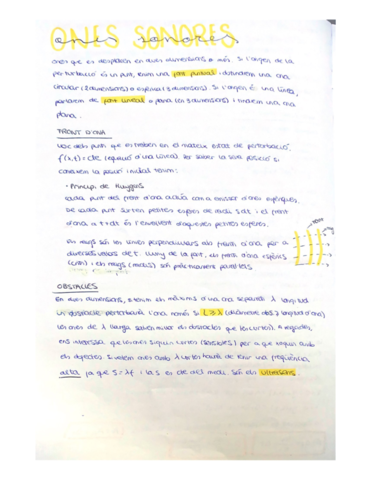 ONES SONORES
ones que es desplacen en dues dimensions o més. Si l'origen de la
pertorbació és un punt, tenim una font puntual i obtindrem una ona
circular (2 dimensions) o esfèrica (3 dimensions). Si l'origen és una línia,
parlarem de font lineal o plana (3 dimensions) i tindrem una ona
plana.
FRONT D'ONA
lloc dels punts que es troben en el mateix estat de pertorbació.
f(x,t)=cte (equació d'una línia) per saber la seva posició si
coneixem la posició inicial tenim:
· Principi de Huygens
cada punt del front d'ona actúa com a emissor d'ones esfèriques.
De cada punt surten petites esferes de radi i el front
d'ona és l'envolvent d'aquestes petites esferes.
els raigs són les línies perpendiculars als fronts d'ona per a
diversos valors de t. lluny de la font, els fronts d'ona esfèrics
i els raigs són pràcticament paral·lels.
OBSTACLES
En dues dimensions, tenim els màxims d'una ona separats λ longitud
un obstacle pertorbarà l'ona només si L≥λ
les ones de λ llarga salven millor els obstacles que les curtes. A vegades,
ens interessa que les ones siguin curtes per a que
els objectes si volem ones amb λ curtes haurà de tenir una freqüència
alta ja que S=λf i la S és de cada medi. Són els ultrasons.